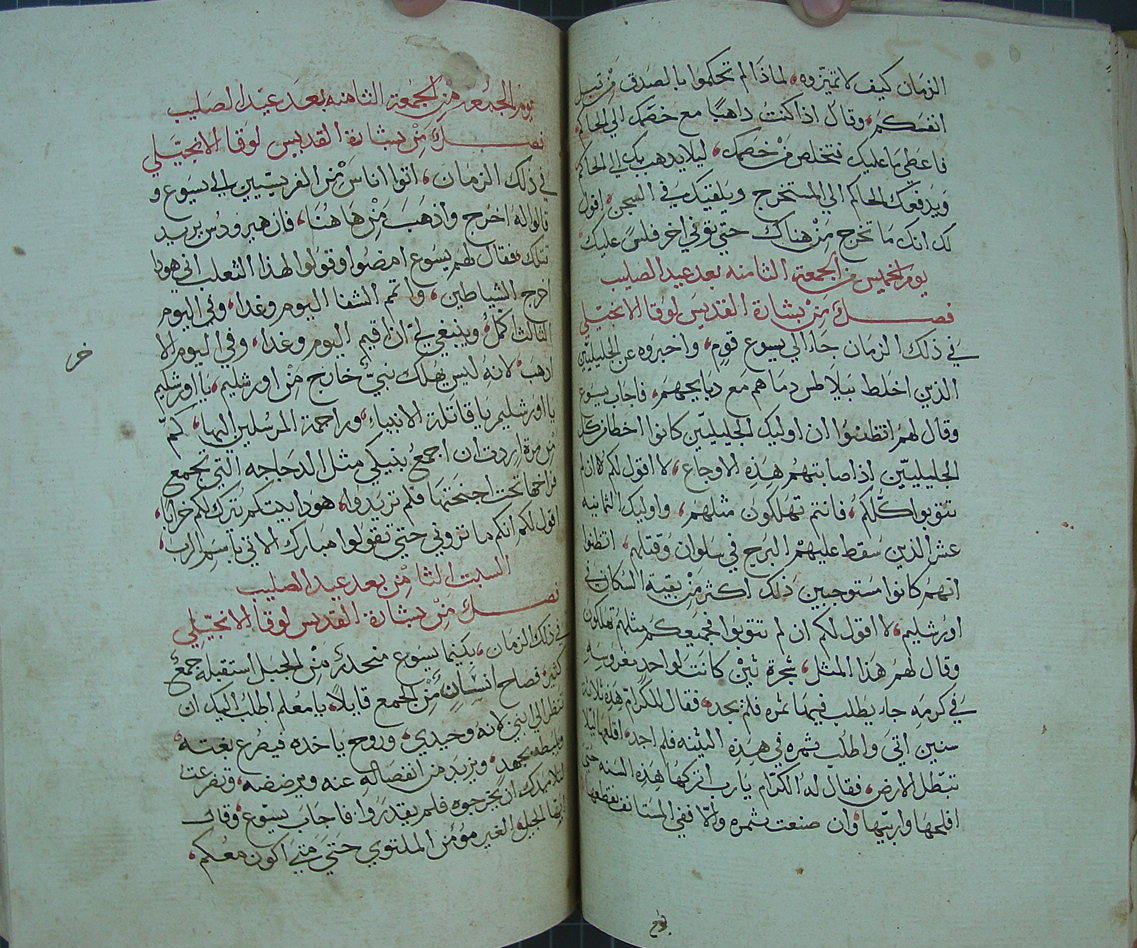 الزمان كيف لا تميزوه، لماذا لم تحكموا بالصدق من قبل
انفسكم، وقال اذا كنت ذاهبًا مع خصمك الي الحاكم
فاعطي ما عليك فتخلص من خصمك، ليلا يدهب بك الي الحاكم
ويدفعك الحاكم الي المستخرج ويلقيك في السجن، اقول
لك انك ما تخرج من هناك حتي توفي اخر فلس عليك،
يوم الخميس من الجمعة الثامنه بعد عيد الصليب
فصل من بشارة القديس لوقا الانجيلي
في ذلك الزمان جاء الي يسوع قوم، واخبروه عن الجليليين
الذين اخلط بيلاطس دماهم مع دبايحهم، فاجاب يسوع
وقال لهم اتظنوا ان اوليك الجليليين كانوا اخطا من كل
الجليليين اذ اصابتهم هذه الاوجاع، لا اقول لكم لا ان لم
تتوبوا كلكم، فانتم تهلكون مثلهم، واوليك الثمانيه
عشر الذين سقط عليهم البرج في سلوان وقتلهم، اتظنوا
انهم كانوا مستوجبين ذلك اكثر من بقية السكان في
اورشليم، لا اقول لكم ان لم تتوبوا فجميعكم مثلهم تهلكون
وقال لهم هذا المثل، شجرة تين كانت لواحد مغروسه
في كرمه جاء يطلب فيها ثمره فلم يجد، فقال للكرام هذه ثلاثة
سنين اتي واطلب ثمره في هذه التينه فلم اجد، اقلعها ليلا
تبطل الارض، فقال له الكرام يارب اتركها هذه السنه حتي
افلحها واربيها، وان صنعت ثمره والا ففي المستانف يقطعها،
يوم الجمعة من الجمعة الثامنه بعد عيد الصليب
فصل من بشارة القديس لوقا الانجيلي
في ذلك الزمان، اتوا اناس من الفريسيين الي يسوع و
قالوا له اخرج واذهب من هاهنا، فان هيرودس يريد
قتلك، فقال لهم يسوع امضوا وقولوا لهذا الثعلب اني هودا
اخرج الشياطين، واتم الشفا اليوم وغدا، وفي اليوم
الثالث اكمل، وينبغي لي ان اقيم اليوم وغدا، وفي اليوم الا
اذهب، لانه ليس يهلك نبي خارج من اورشليم، يا اورشليم
خر
يا اورشليم يا قاتلة الانبياء، وراجمة المرسلين اليها، كم
من مرة اردت ان اجمع بنيكي مثل الدجاجه التي تجمع
فراخها تحت اجنحتها فلم تريدوا، هودا بيتكم يترك لكم خرابا،
اقول لكم انكم ما تروني حتي تقولوا مبارك الاتي باسم الرب،
السبت الثامن بعد عيد الصليب
فصل من بشارة القديس لوقا الانجيلي
في ذلك الزمان، بينما يسوع منحدر من الجبل استقبله جمع
كثير، فصاح انسان من الجمع قايلا، يا معلم اطلب اليك ان
تنظر الي ابني لانه وحيدي، وروح ياخده فيصرع بغتة،
بجهد، ويزيد من انفصاله عنه ويرضضه،
ان يخرجوه فلم يقدروا، فاجاب يسوع، وقال
ايها الجيل الغير مؤمن الملتوي حتي متي اكون معكم،